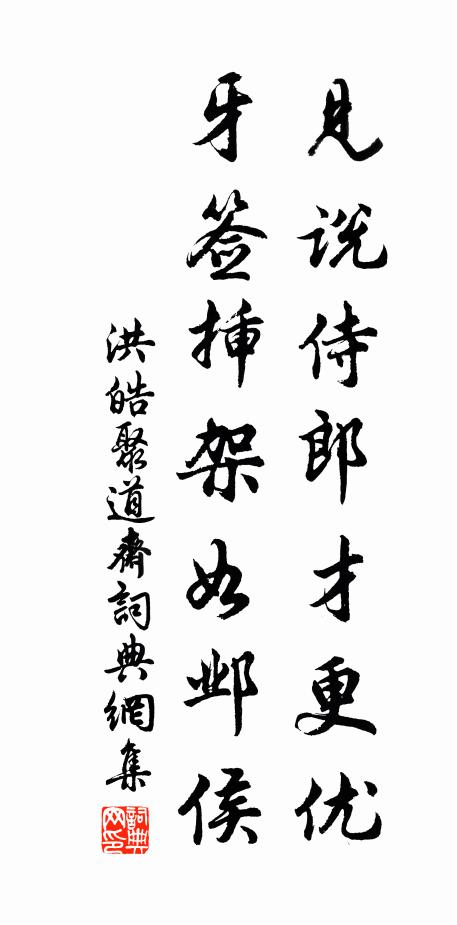 见说侍郎才更优
牙签插架如邺侯
洪皓聚道斋詞典網集
詞典网印